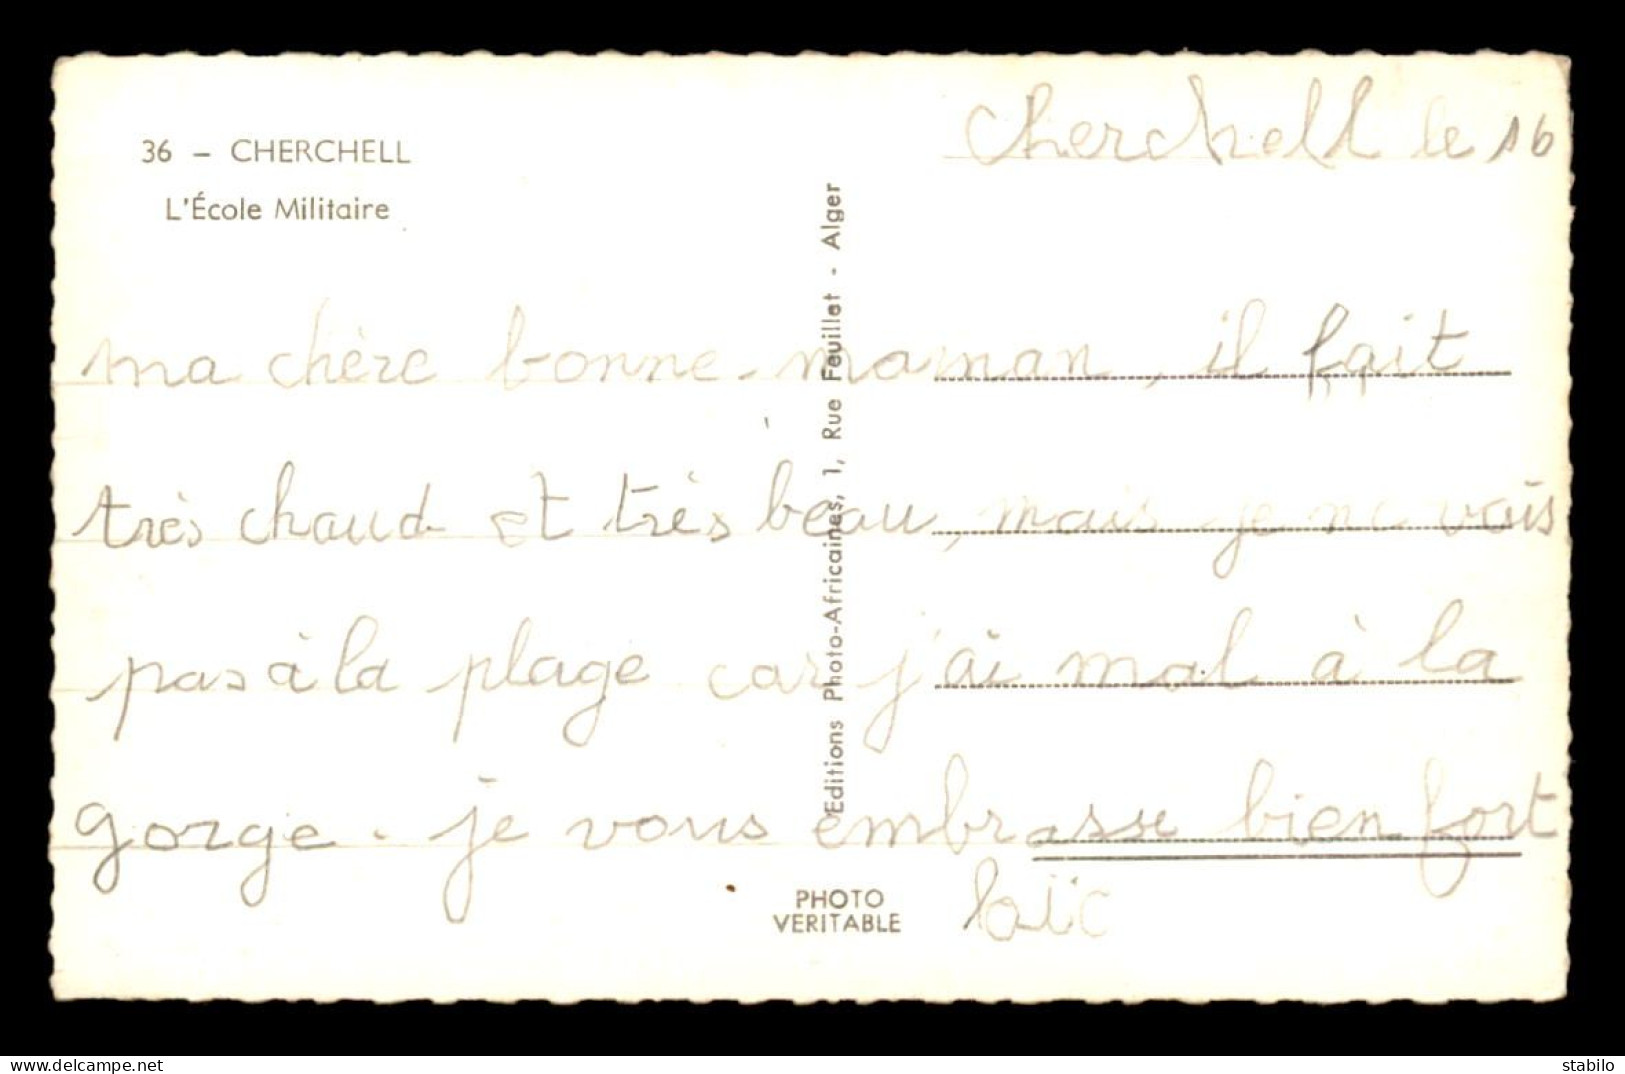 36 – CHERCHELL
L'École Militaire
Cherchell le 16
ma chère bonne-maman, il fait
très chaud et très beau, mais je ne vais
pas à la plage car j'ai mal à la
gorge. je vous embrasse bien fort
Loïc
Editions Photo-Africaines, 1, Rue Feuillet - Alger
PHOTO
VERITABLE
delcampe.net
stabilo